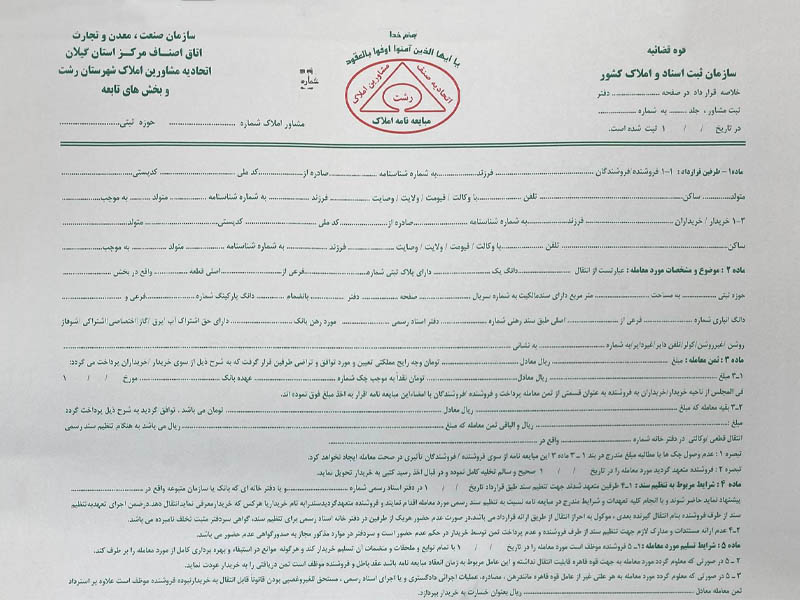 بنام خدا
یا ایها الذین آمنوا اوفوا بالعقود
اتحادیه صنف مشاورین املاک
رشت
مبایعه نامه املاک
قوه قضائیه
سازمان ثبت اسناد و املاک کشور
خلاصه قرارداد در صفحه ........ دفتر
ثبت مشاور ، جلد ........ به شماره ........
در تاریخ / / ۱ ثبت شده است.
سازمان صنعت ، معدن و تجارت
اتاق اصناف مرکز استان گیلان
اتحادیه مشاورین املاک شهرستان رشت
و بخش های تابعه
شماره
مشاور املاک شماره ........ حوزه ثبتی ........
ماده۱- طرفین قرارداد : ۱-۱ فروشنده/فروشندگان ........ فرزند ........ به شماره شناسنامه ........ صادره از ........ کد ملی ........ کدپستی ........
متولد ........ ساکن ........ تلفن ........ با وکالت / قیومت / ولایت / وصایت ........ فرزند ........ به شماره شناسنامه ........ متولد ........ به موجب ........
۱-۳ خریدار / خریداران ........ فرزند ........ به شماره شناسنامه ........ صادره از ........ کد ملی ........ کدپستی ........ متولد ........
ساکن ........ تلفن ........ با وکالت / قیومت / ولایت / وصایت ........ فرزند ........ به شماره شناسنامه ........ متولد ........ به موجب ........
ماده ۲ : موضوع و مشخصات مورد معامله : عبارتست از انتقال ........ دانگ یک ........ دارای پلاک ثبتی شماره ........ فرعی از ........ اصلی قطعه ........ واقع در بخش ........
حوزه ثبتی ........ به مساحت ........ متر مربع دارای سندمالکیت به شماره سریال ........ صفحه ........ دفتر ........ بانضمام ........ دانگ پارکینگ شماره ........ فرعی و ........
دانگ انباری شماره ........ فرعی از ........ اصلی طبق سند رهنی شماره ........ دفتر اسناد رسمی ........ مورد رهن بانک ........ دارای حق اشتراک آب / برق / گاز/اختصاصی/اشتراکی /شوفاژ
روشن /غیرروشن/کولر/تلفن دایر/غیردایر/به شماره ........ به نشانی ........
ماده ۳ : ثمن معامله : مبلغ ........ ریال معادل ........ تومان وجه رایج مملکتی تعیین و مورد توافق و تراضی طرفین قرار گرفت که به شرح ذیل از سوی خریدار /خریداران پرداخت می گردد:
۳-۱ مبلغ ........ ریال معادل ........ تومان نقداً به موجب چک شماره ........ عهده بانک ........ مورخ / / ۱
فی المجلس از ناحیه خریدار/خریداران به فروشنده به عنوان قسمتی از ثمن معامله پرداخت و فروشنده /فروشندگان با امضاءاین مبایعه نامه اقرار به اخذ مبلغ فوق نموده اند.
۳-۲ بقیه معامله که مبلغ ........ ریال معادل ........ تومان می باشد . توافق گردید به شرح ذیل پرداخت گردد
مبلغ : ........ ریال و الباقی ثمن معامله که مبلغ ........ ریال می باشد به هنگام تنظیم سند رسمی
انتقال قطعی /وکالتی در دفتر خانه شماره ........ واقع در ........
تبصره ۱ : عدم وصول چک ها یا مطالبه مبلغ مندرج در بند ۱-۳ ماده ۳ این مبایعه نامه از سوی فروشنده / فروشندگان تأثیری در صحت معامله ایجاد نخواهد کرد.
تبصره ۲ : فروشنده متعهد گردید مورد معامله را در تاریخ / / ۱ صحیح و سالم تخلیه کامل نموده و در قبال اخذ رسید کتبی به خریدار تحویل نماید.
ماده ۴ : شرایط مربوط به تنظیم سند : ۴-۱ طرفین متعهد شدند جهت تنظیم سند طبق قرارداد تاریخ / / ۱ در دفتر اسناد رسمی شماره ........ و یا دفتر خانه ای که بانک یا سازمان متبوعه واقع در ........
پیشنهاد نماید حاضر شوند و با انجام کلیه تعهدات و شرایط مندرج در مبایعه نامه نسبت به تنظیم سند رسمی مورد معامله اقدام نمایند و فروشنده متعهدگردیدسندرابه نام خریدار یا هر کس که خریدارمعرفی نمایدانتقال دهد.درضمن اجرای تعهدبه‌تنظیم
سند از طرف فروشنده بنام انتقال گیرنده بعدی ، موکول به احراز انتقال از طریق ارائه قرارداد می باشد.در صورت عدم حضور هریک از طرفین در دفتر خانه اسناد رسمی برای تنظیم سند، گواهی سردفتر مثبت تخلف نامبرده می باشد.
۴-۲ عدم ارائه مستندات و مدارک لازم جهت تنظیم سند از طرف فروشنده و عدم پرداخت ثمن توسط خریدار در حکم عدم حضور است و سردفتر در موارد مذکور مجاز به صدورگواهی عدم حضور می باشد.
ماده ۵ : شرایط تسلیم مورد معامله : ۵-۱ فروشنده موظف است مورد معامله را در تاریخ / / ۱ با تمام توابع و ملحقات و منضمات آن تسلیم خریدار کند و هرگونه موانع در استیفاء و بهره برداری کامل از مورد معامله را بر طرف کند.
۵-۲ در صورتی که معلوم گردد مورد معامله به جهت قوه قاهره قابلیت انتقال نداشته و این عامل مربوط به زمان انعقاد مبایعه نامه باشد عقد باطل و فروشنده موظف است ثمن دریافتی را به خریدار عودت نماید.
۵-۳ در صورتی که معلوم گردد مورد معامله به هر علتی غیر از عامل قوه قاهره مانندرهن ، مصادره، عملیات اجرائی دادگستری و یا اجرای اسناد رسمی ، مستحق للغیروغصبی بودن قانوناً قابل انتقال به خریدارنبوده فروشنده موظف است علاوه بر استرداد
ثمن معامله معادل ........ ریال بعنوان خسارت به خریدار بپردازد.